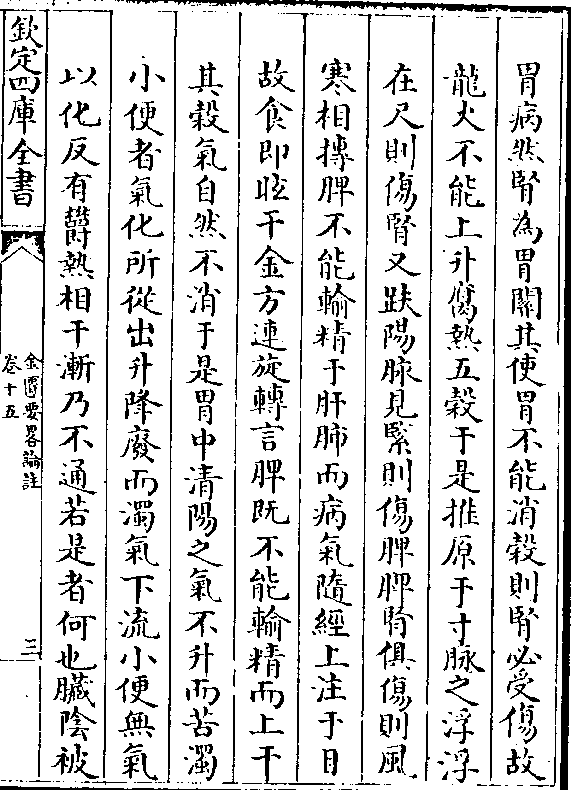 胃病然腎為胃關其使胃不能消穀則腎必受傷故
龍火不能上升腐熱五穀于是推原于寸脉之浮浮
在尺則傷腎又趺陽脉見緊則傷脾脾腎俱傷則風
寒相摶脾不能輸精于肝肺而病氣隨經上注于目
故食即眩千金方連旋轉言脾既不能輸精而上干
其穀氣自然不消于是胃中清陽之氣不升而苦濁
小便者氣化所從出升降廢而濁氣下流小便無氣
以化反有鬱熱相干漸乃不通若是者何也臟陰被
欽定四庫全書
金匱要畧論註
卷十五
三